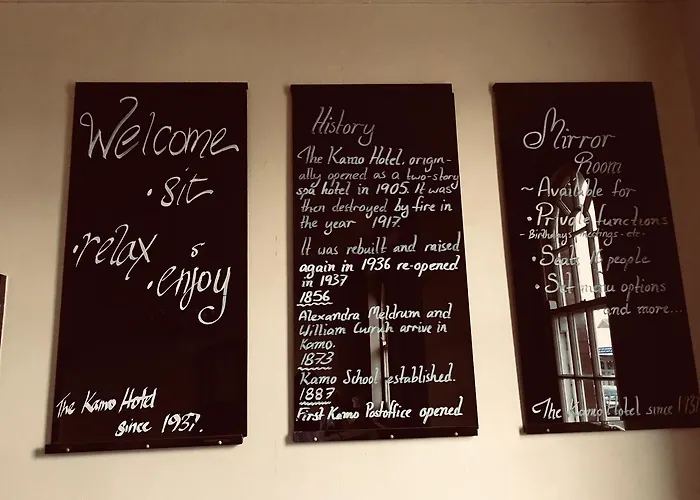 Welcome
• sit
• relax
• enjoy
The Kamo Hotel
since 1937.
History
The Kamo Hotel, origin-
ally opened as a two-story
spa hotel in 1905. It was
then destroyed by fire in
the year 1917.
It was rebuilt and raised
again in 1936 re-opened
in 1937
1856
Alexandra Meldrum and
William arrive in
Kamo.
1873
Kamo School established.
1887
First Kamo Postoffice opened
Mirror
Room
~ Available for
• Private functions
- Birthdays - meetings - etc -
• Seats people
• Set menu options
and more...
The Kamo Hotel since 1937